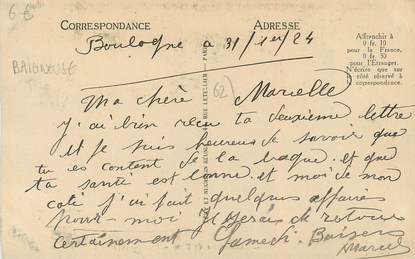 6€
CORRESPONDANCE
ADRESSE
BAIGNEUSE
Affranchir à
0 fr. 10
pour la France,
0 fr. 30
pour l'Etranger.
N'écrire que sur
le côté réservé à
correspondance.
Boulogne a 31/ /24
(62)
Ma chère Marcelle
j'ai bien recu ta deuxieme lettre
et je suis heureux de savoir que
tu es contant de la vague. et que
ta santé est bonne. et moi de mon
coté j'ai fait quelques affaires
pour moi je serai de retour
certainement Samedi. Baisers
Marcel
RUE LETELLIER - PARIS